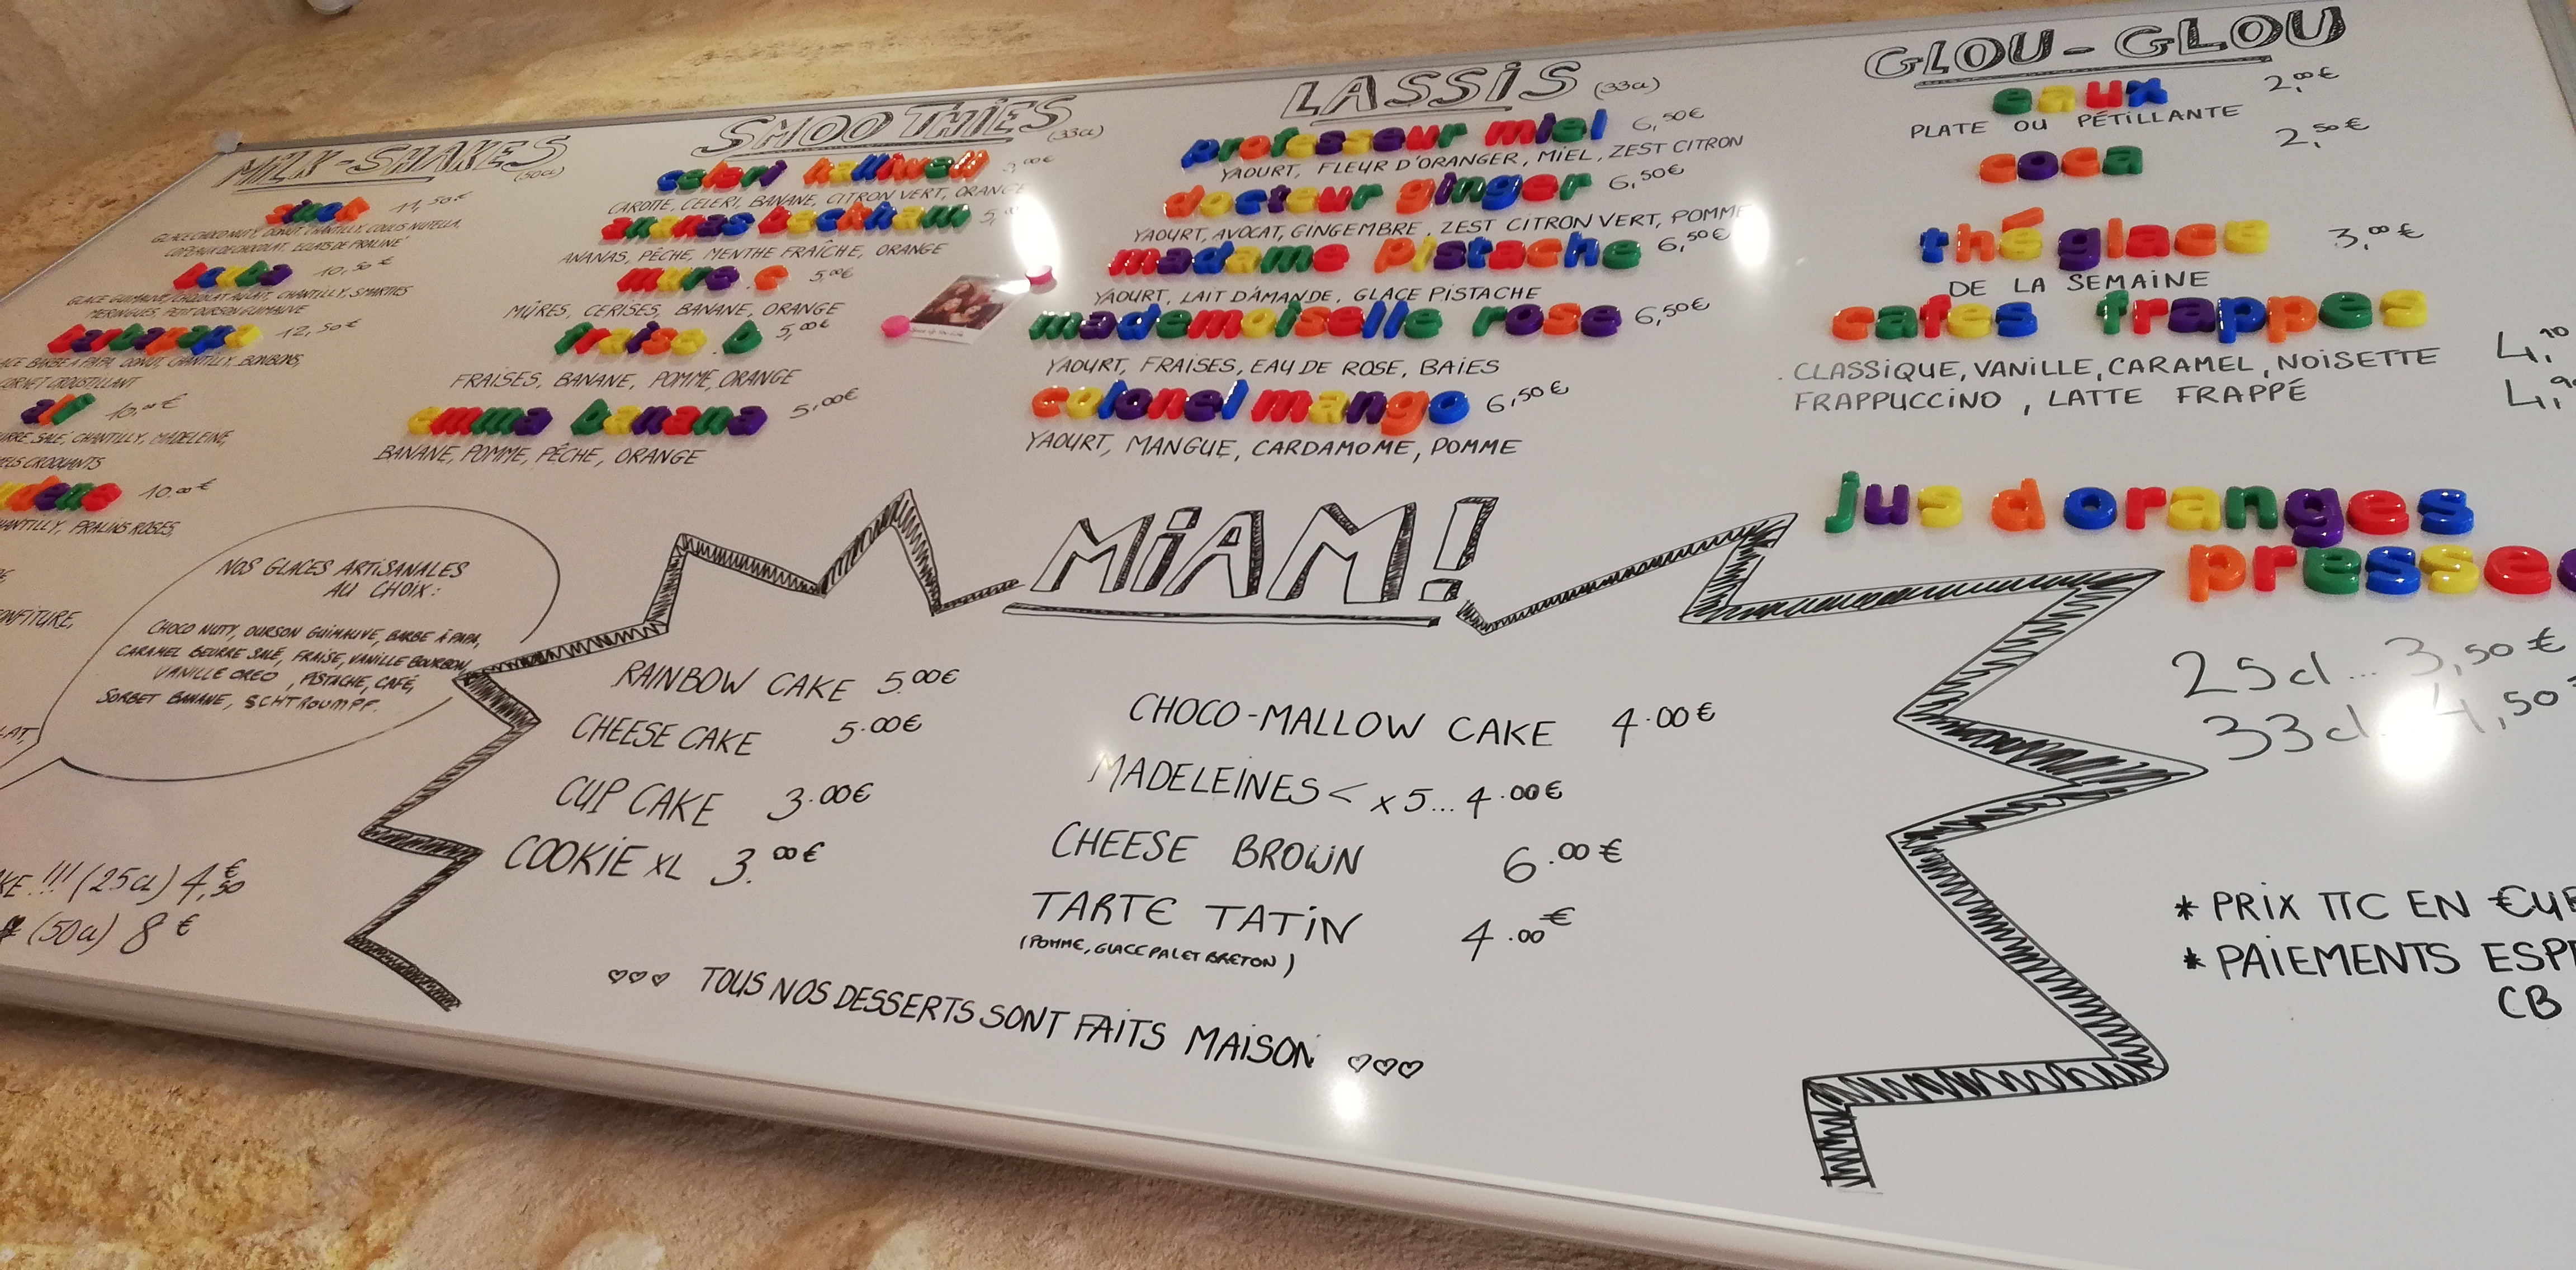 MILK-SHAKES (50cl)
11,50€
GLACE CHOCO NUTY, DONUT, CHANTILLY, COULIS NUTELLA,
COPEAUX DE CHOCOLAT, ECLATS DE PRALINÉ
10,50€
GLACE GUIMAUVE/CHOCOLAT AU LAIT, CHANTILLY, SMARTIES
MERINGUES, PETIT OURSON GUIMAUVE
barbapapa 12,50€
BARBE A PAPA, DONUT, CHANTILLY, BONBONS,
CORNET CROUSTILLANT
alf 10,00€
SALÉ, CHANTILLY, MADELEINE,
CROQUANTS
10.00€
CHANTILLY, PRALINS ROSES,
CONFITURE,
NOS GLACES ARTISANALES
AU CHOIX :
CHOCO NUTY, OURSON GUIMAUVE, BARBE À PAPA,
CARAMEL BEURRE SALÉ, FRAISE, VANILLE BOURBON,
VANILLE OREO, PISTACHE, CAFÉ,
SORBET BANANE, SCHTROUMPF.
!!! (25cl) 4,50€
(50cl) 8€
SMOOTHIES (33cl)
celeri halliwell
CAROTTE, CELERI, BANANE, CITRON VERT, ORANGE
ananas beckham 5,
ANANAS, PÊCHE, MENTHE FRAÎCHE, ORANGE
mure . c 5,00€
MÛRES, CERISES, BANANE, ORANGE
fraise . b 5,00€
FRAISES, BANANE, POMME, ORANGE
emma banana 5,00€
BANANE, POMME, PÊCHE, ORANGE
LASSIS (33cl)
professeur miel 6,50€
YAOURT, FLEUR D'ORANGER, MIEL, ZEST CITRON
docteur ginger 6,50€
YAOURT, AVOCAT, GINGEMBRE, ZEST CITRON VERT, POMME
madame pistache 6,50€
YAOURT, LAIT D'AMANDE, GLACE PISTACHE
mademoiselle rose 6,50€
YAOURT, FRAISES, EAU DE ROSE, BAIES
colonel mango 6,50€
YAOURT, MANGUE, CARDAMOME, POMME
GLOU-GLOU
eaux 2,00€
PLATE OU PÉTILLANTE
coca 2,50€
thé glace 3,00€
DE LA SEMAINE
cafes frappes
CLASSIQUE, VANILLE, CARAMEL, NOISETTE 4,10
FRAPPUCCINO, LATTE FRAPPÉ 4,
jus d oranges
presse
25cl... 3,50€
33cl 4,50
* PRIX TTC EN
* PAIEMENTS
CB
MIAM!
RAINBOW CAKE 5.00€
CHEESE CAKE 5.00€
CUP CAKE 3.00€
COOKIE XL 3.00€
CHOCO-MALLOW CAKE 4.00€
MADELEINES < x5... 4.00€
CHEESE BROWN 6.00€
TARTE TATIN 4.00€
(POMME, GLACE PALET BRETON)
♡♡♡ TOUS NOS DESSERTS SONT FAITS MAISON ♡♡♡